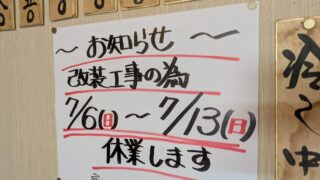 ～お知らせ～
改装工事の為
7/6(日)～7/13(日)
休業します